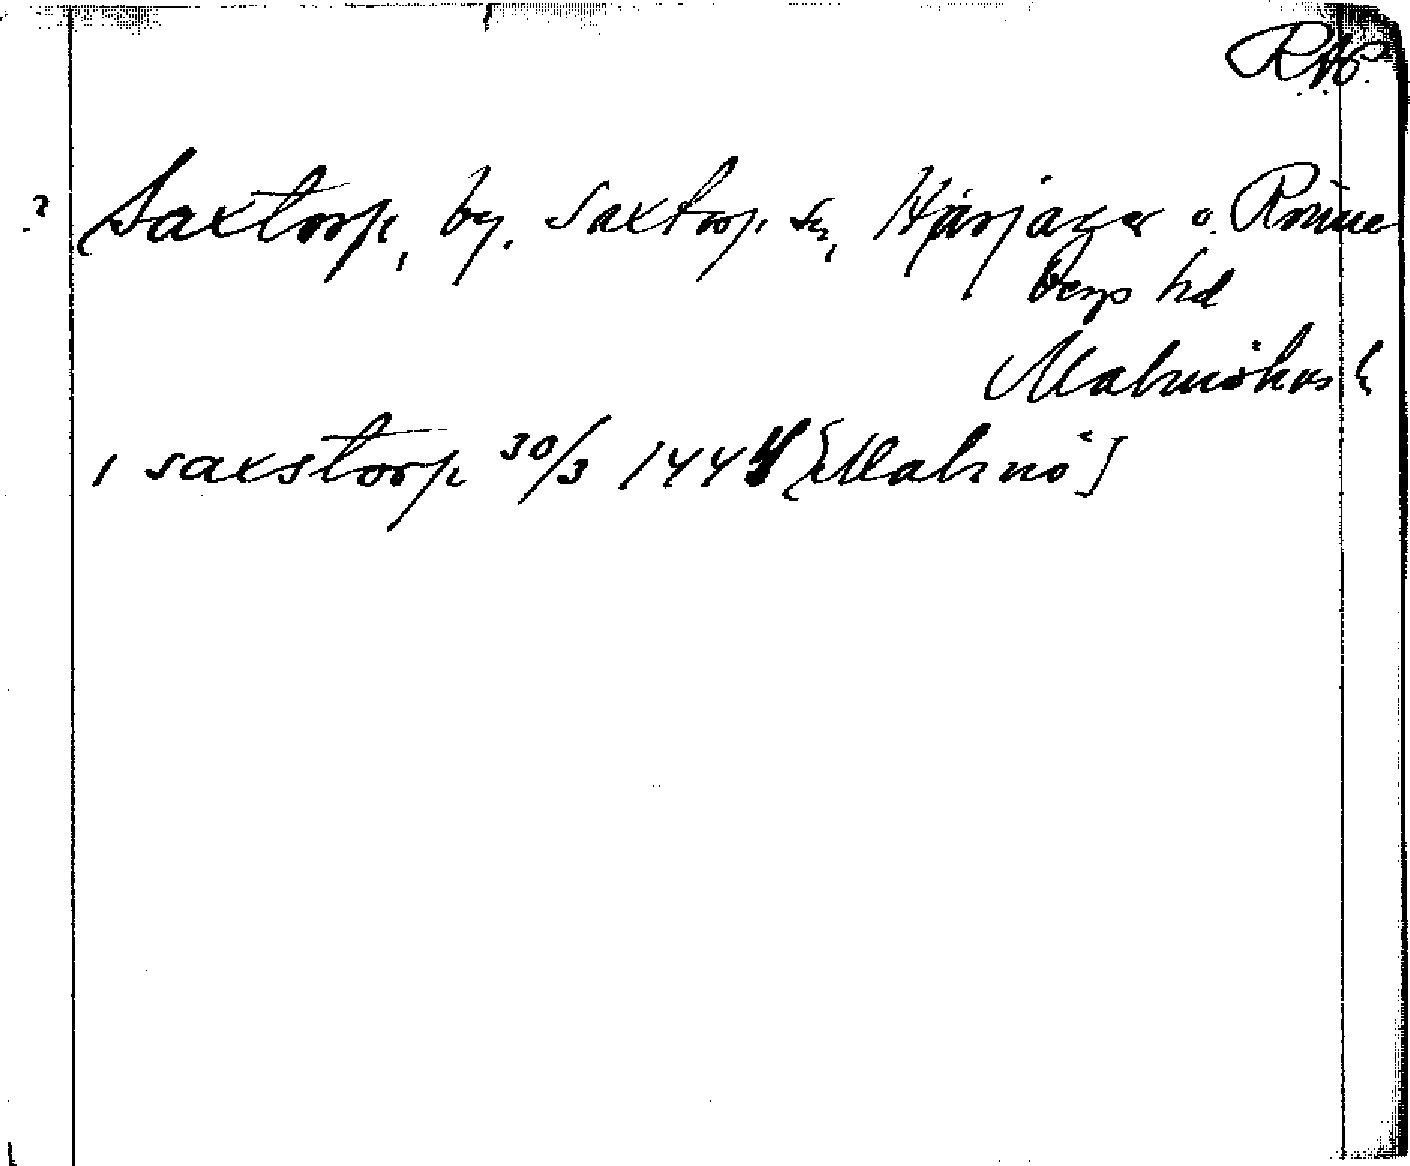 R.A.P.
? Saxtorp, by. Saxtorp sn, Harjagers o. Rönne
bergs hd
Malmöhus l
i saxstorp 30/3 1444 [Malmö]